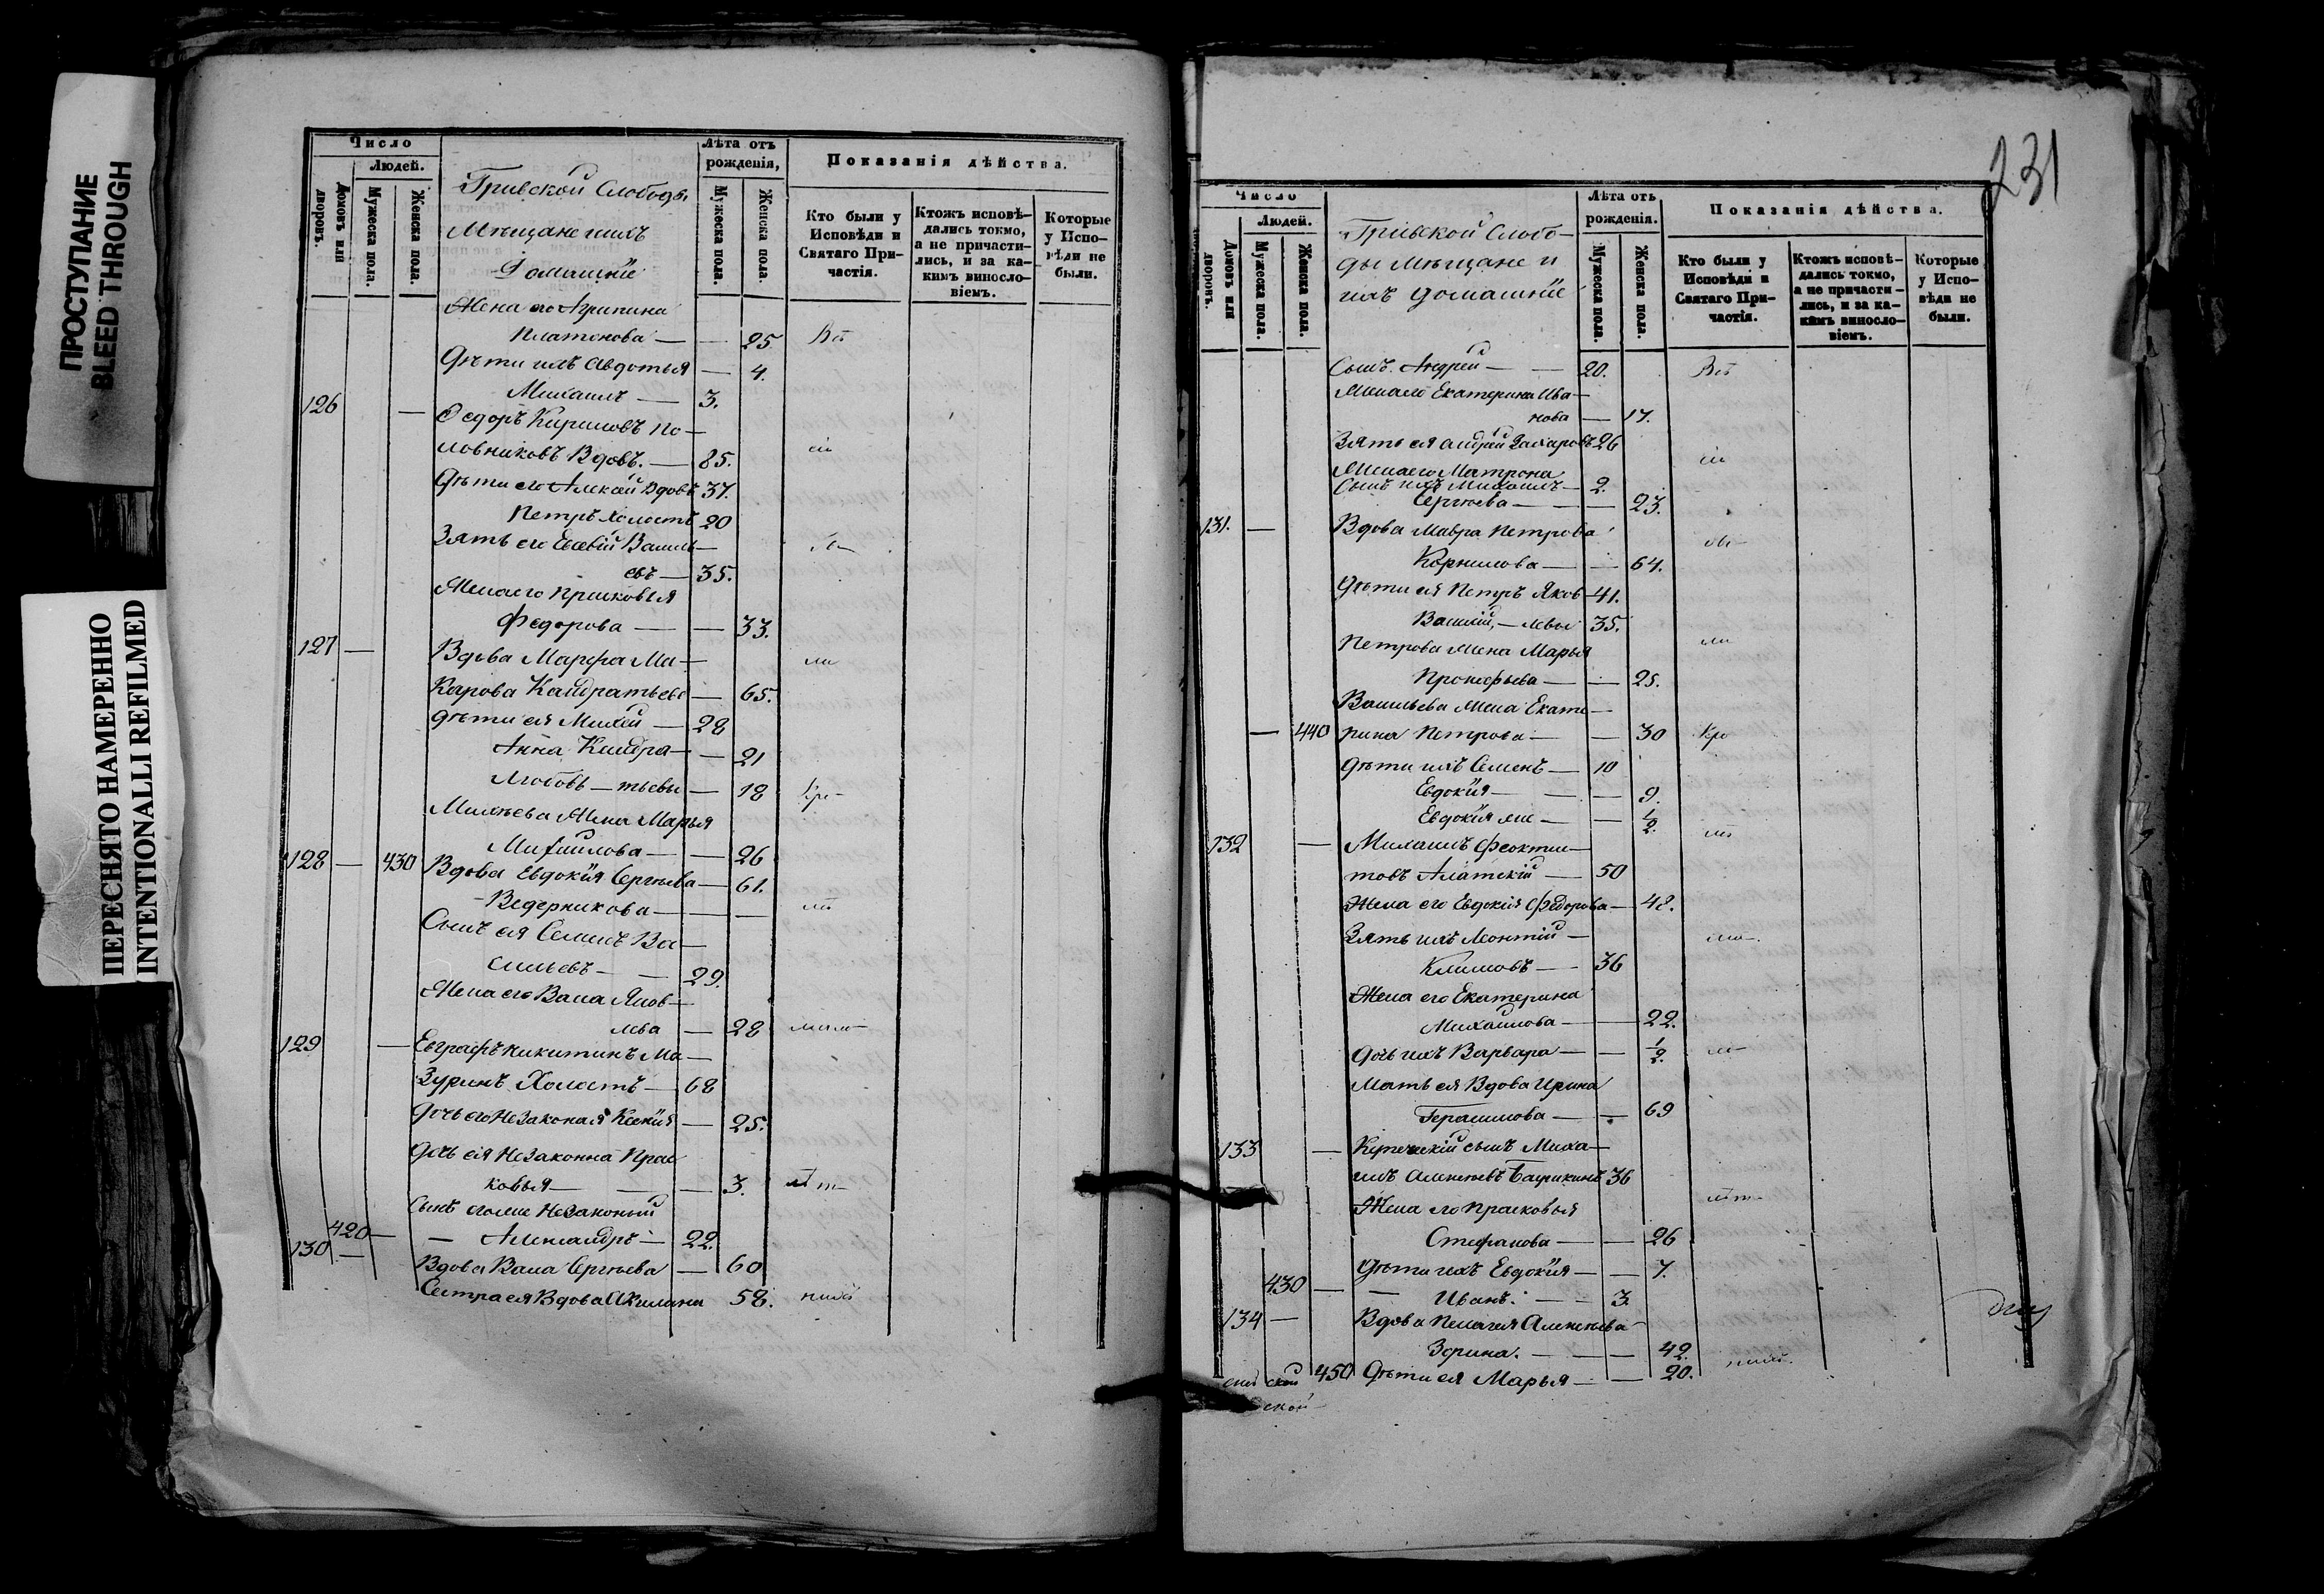 ПРОСТУПАНИЕ
BLEED THROUGH
ПЕРЕСНЯТО НАМЕРЕННО
INTENTIONALLI REFILMED
Число
Людей.
Домовъ или дворовъ.
Мужеска пола.
Женска пола.
Гривской Слободы
Мѣщане и ихъ
Домашніе
Лѣта отъ рожденія,
Мужеска пола.
Женска пола.
Показанія дѣйства.
Кто были у Исповѣди и Святаго Причастія.
Ктожъ исповѣдались токмо, а не причастились, и за какимъ винословіемъ.
Которые у Исповѣди не были.
Жена его Агрипина
Платонова — — 25
Дѣти ихъ Авдотья — 4.
Михаилъ — 3.
126 — Федоръ Кириловъ По-
ловниковъ Вдовъ. — 85.
Дѣти его Алексѣй Вдовъ 37.
Петръ холостъ 20
Зять его Евсевій Василь-
евъ — 35.
Жена его Прасковья
Федорова — — 33.
127 — Вдова Марфа Ма-
карова Кандратьева — 65.
дѣти ея Михей — 28
Анна Кандра- — 21
Любовь — тьевы — 18
Михѣева Жена Марья
Михайлова — — 26
128 — 430 Вдова Евдокія Сергѣева — 61.
Ведерникова — — —
Сынъ ея Семенъ Ва-
сильевъ — — 29.
Жена его Васа Яков-
лева — 28
129 — Евграфъ Никитинъ Ма-
зуринъ Холостъ — 68
Дочь его Незаконая Ксенія — 25.
Дочь ея Незаконна Прас
ковья — — — 3.
Сынъ его же Незаконый
420 — — Александръ — 22.
130 — Вдова Васа Сергѣева — 60
Сестра ея Вдова Акилина 58.
231
Число
Людей.
Домовъ или дворовъ.
Мужеска пола.
Женска пола.
Гривской Слобо-
ды Мѣщане и
ихъ домашніе
Лѣта отъ рожденія.
Мужеска пола.
Женска пола.
Показанія дѣйства.
Кто были у Исповѣди и Святаго Причастія.
Ктожъ исповѣдались токмо, а не причастились, и за какимъ винословіемъ.
Которые у Исповѣди не были.
Сынъ Андрей — — 20.
Жена его Екатерина Ива-
нова — 17.
Зять ея Андрей Захаровъ 26
Жена его Матрона
Сынъ ихъ Михаилъ — 2.
Сергѣева — — — 23.
131. — Вдова Мавра Петрова
Корнилова — — 64.
Дѣти ея Петръ Яков- 41.
Василій, — левы 35.
Петрова Жена Марья
Прокофьева — — 25.
Васильева Жена Екате-
— 440 рина Петрова — — 30
Дѣти ихъ Семенъ — 10
Евдокія — — — 9.
Евдокія же — — 1/2.
132 — Михаилъ Феоктис-
товъ — 50
Жена его Евдокія Федорова — 48.
Зять ихъ Леонтій —
Климовъ — 36
Жена его Екатерина
Михайлова — — 22.
Дочь ихъ Варвара — — 1/2.
Мать ея Вдова Ирина
Герасимова — — 69
133 — Купеческій сынъ Миха-
илъ Алексѣевъ 36
Жена его Прасковья
Стефанова — — 26
Дѣти ихъ Евдокія — — 7.
430 — — Иванъ. — — 3.
134 — Вдова Пелагея Алексѣева
Зорина. — — — 42.
450 Дѣти ея Марья — — 20.